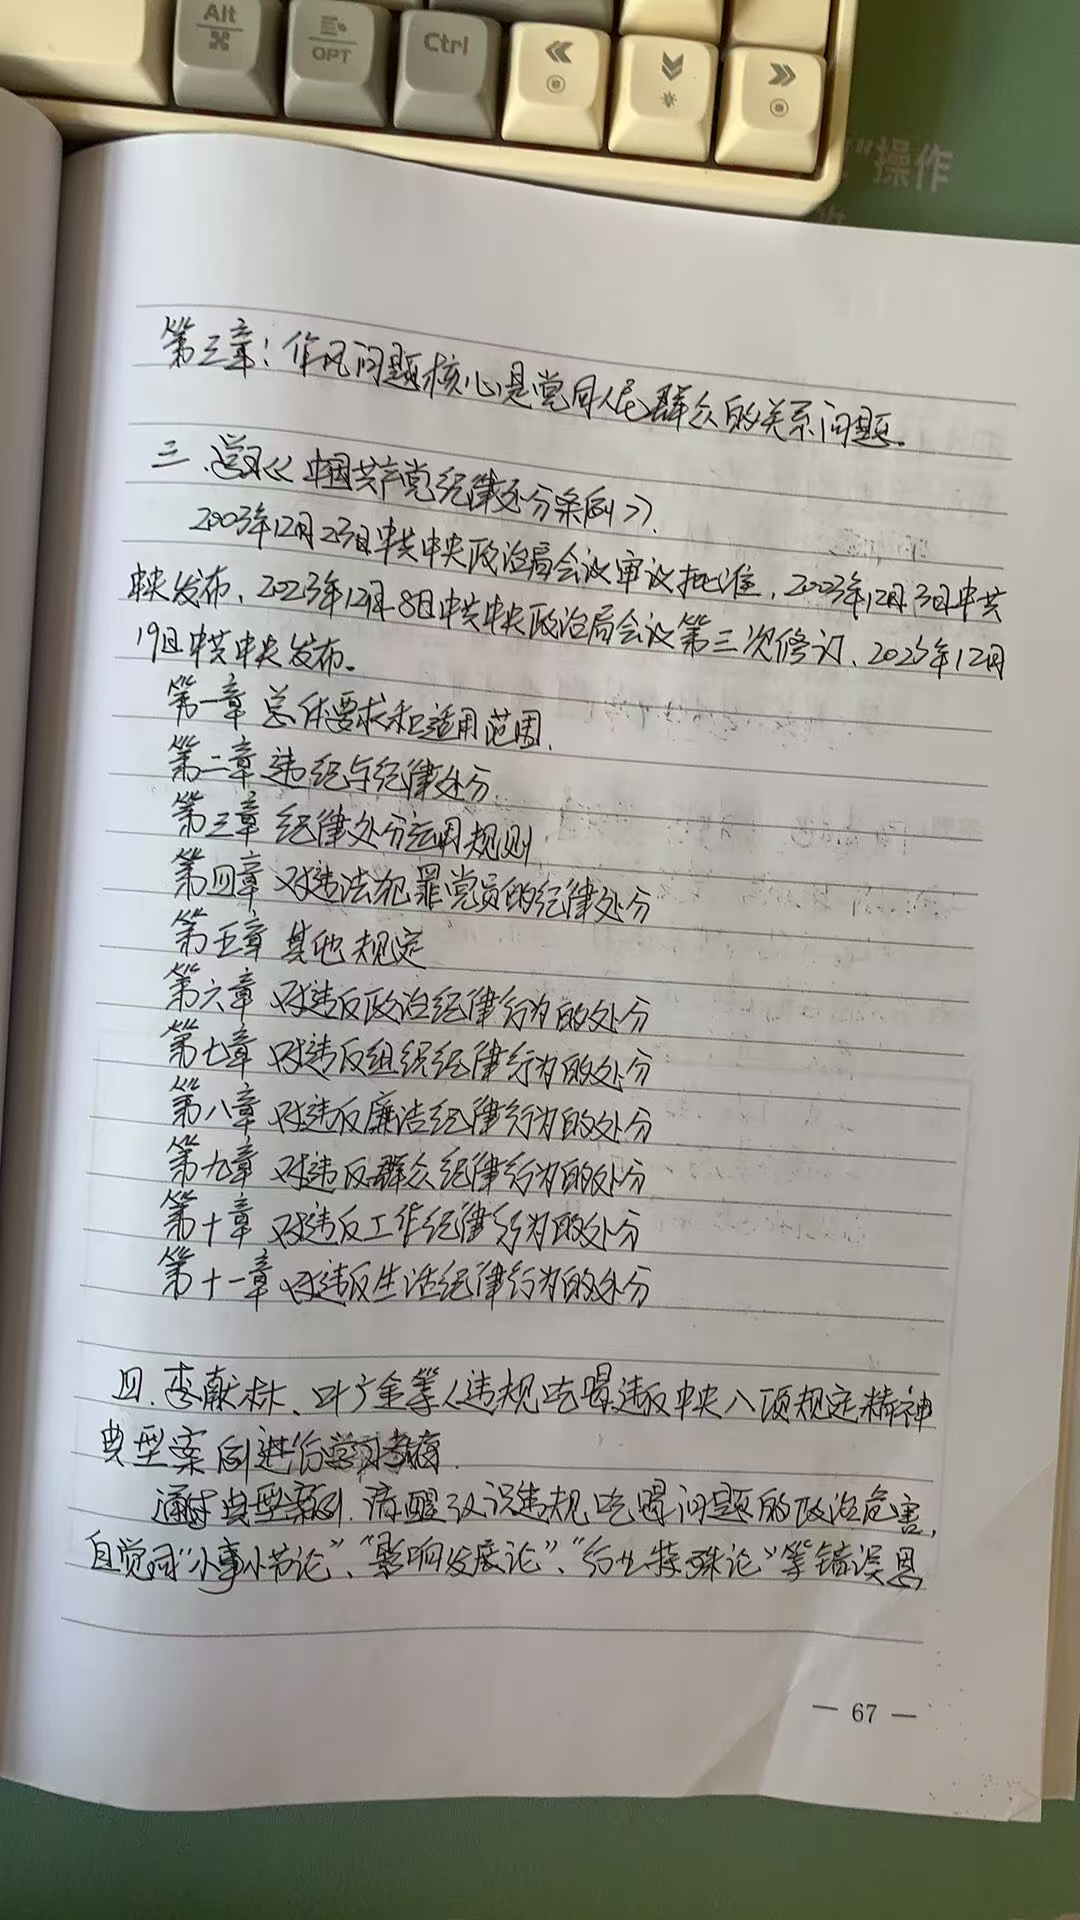 Alt
OPT
Ctrl
"操作
第三章：作风问题核心是党同人民群众的关系问题。
三、学习《中国共产党纪律处分条例》.
2003年12月23日中共中央政治局会议审议批准，2003年12月3日中共
中央发布、2023年12月8日中共中央政治局会议第三次修订、2023年12月
19日中共中央发布。
第一章 总体要求和适用范围.
第二章 违纪与纪律处分.
第三章 纪律处分运用规则
第四章 对违法犯罪党员的纪律处分
第五章 其他规定
第六章 对违反政治纪律行为的处分
第七章 对违反组织纪律行为的处分
第八章 对违反廉洁纪律行为的处分
第九章 对违反群众纪律行为的处分
第十章 对违反工作纪律行为的处分
第十一章 对违反生活纪律行为的处分
四、李献林、叶金等人违规吃喝违反中央八项规定精神
典型案例进行学习
通过典型案例，清醒认识违规吃喝问题的政治危害，
自觉同“小事小节论”、“影响发展论”、“行业特殊论”等错误思
— 67 —